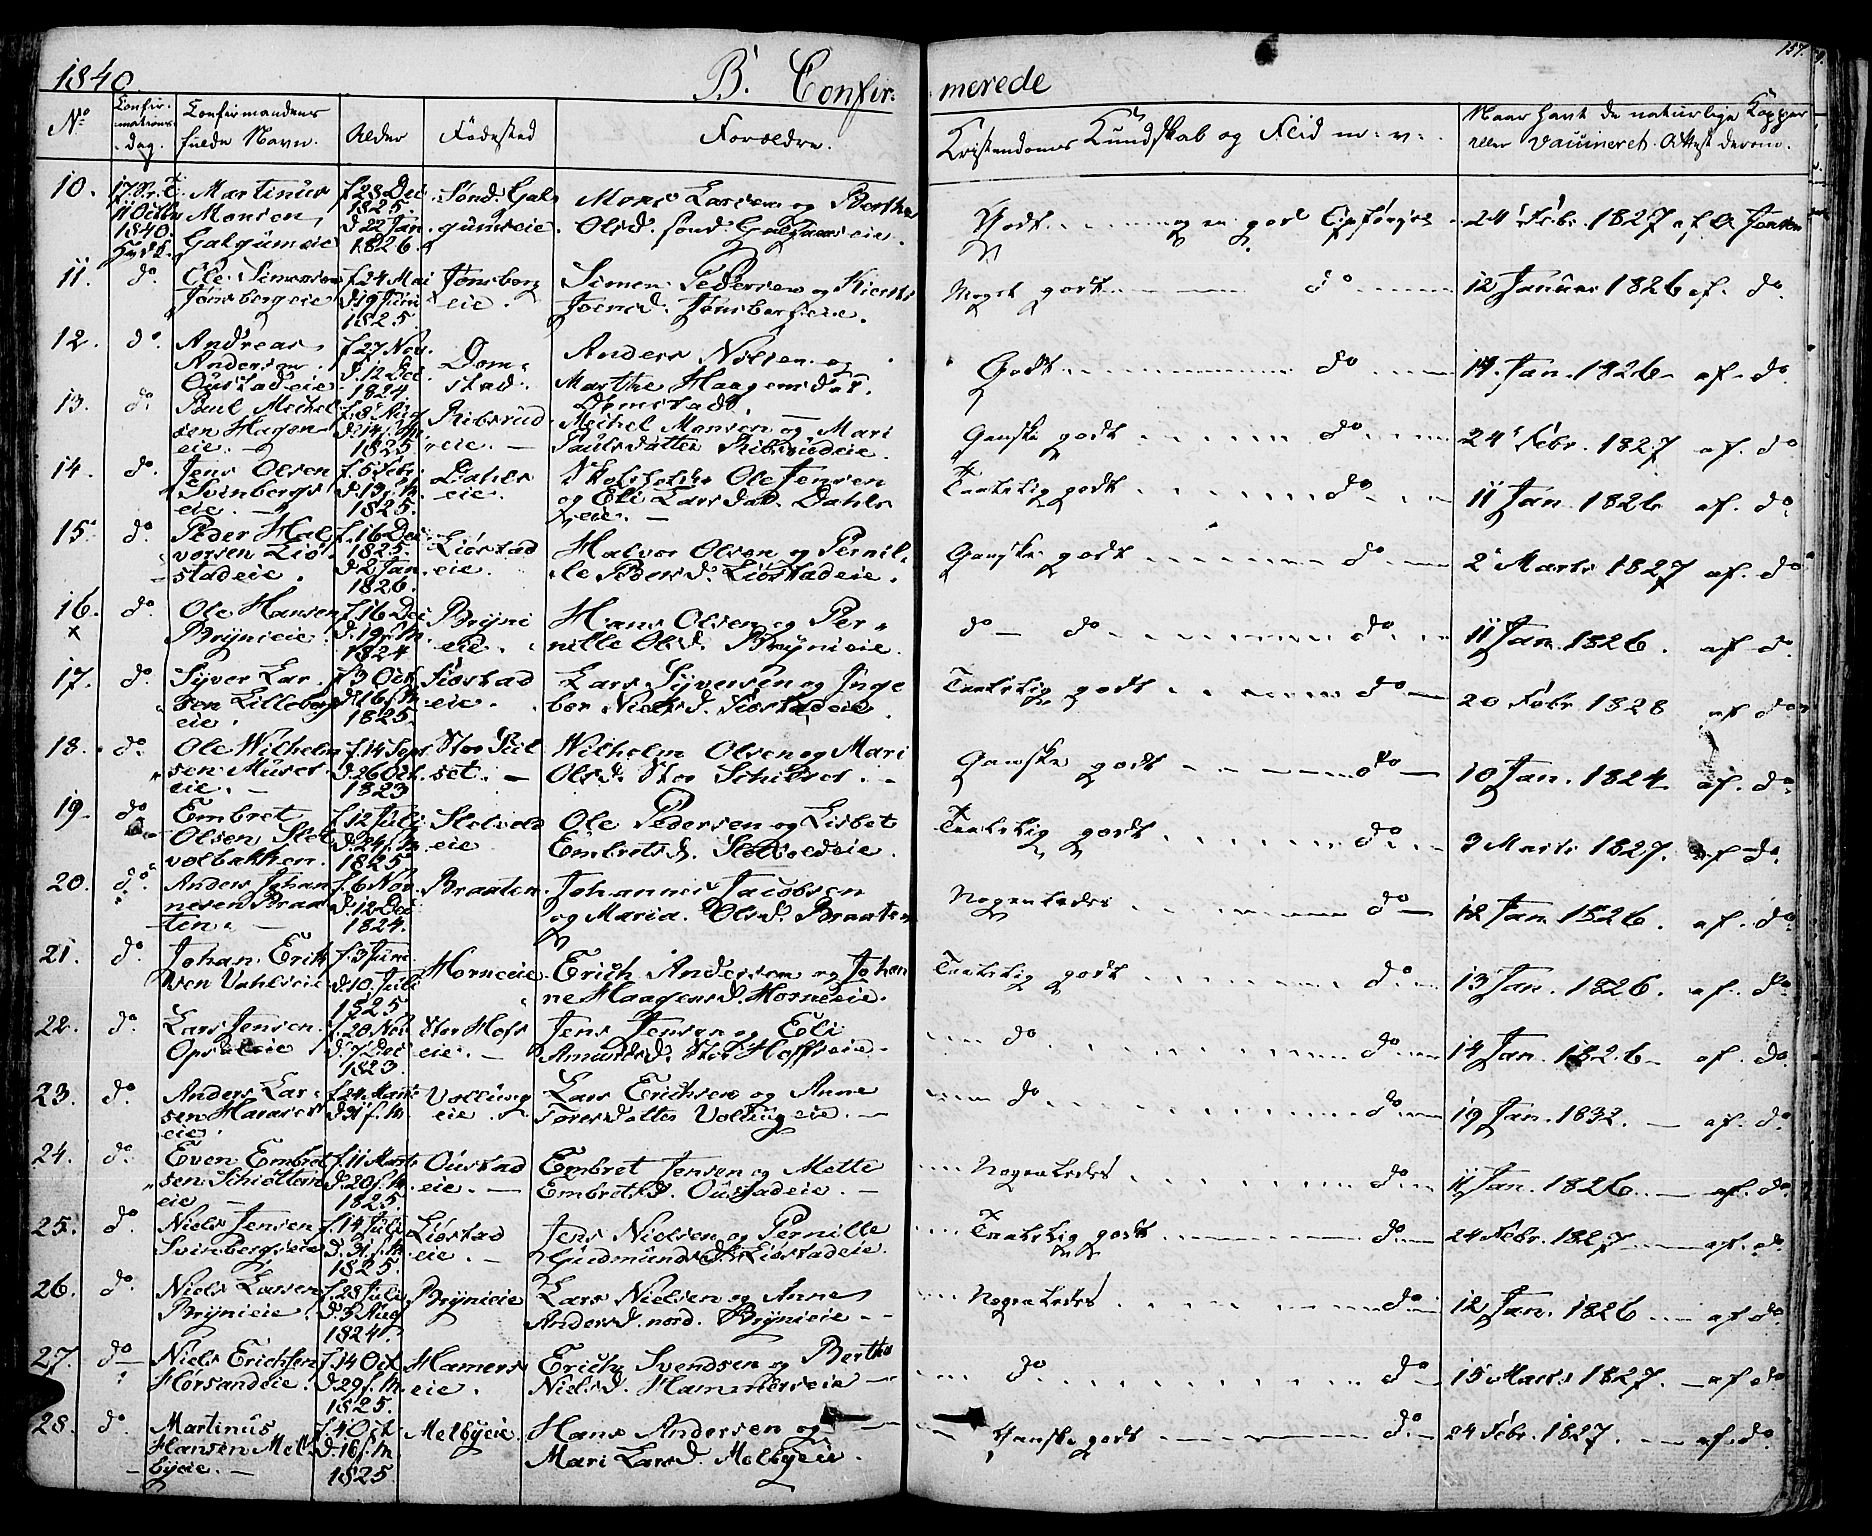 1840.
B. Confir- merede
157.
No
Confirmations Dag.
Confirmandens fulde Navn.
Alder
Födested
Forældre.
Kundskab og Flid m: v:
Kristendoms
Naar havt de naturlige Kopper eller Vaccineret. Attest derom.
10. 11 Octbr 1840. Martinus Monsen, Galgumeie f. 28 Dec 1825. d. 22 Jan 1826. Sönd. Galgumeie. Mons Larsen og Berthe Olsd. sönd. Galgumeie. Godt og en god Opförsel 24 Febr. 1827 af O Jensen
11. do. Ole Simensen Jönsbergeie f. 24 Mai d. 19 Juni 1825. Jönsbergeie. Simen Pedersen og Joensd. Jönsbergeie. Meget godt do 12 Januar 1826 af. do.
12. do. Andreas Andersen Oustadeie f. 27 Nov. d. 12 Dec 1824. Domstad. Anders Nilsen og Marthe Haagensdat. Domstad. Godt do 14 Jan. 1826 af. do
13. do. Paul Michelsen Hageneie. f. 8 Aug d. 14 f. M. 1825. Ribsrudeie. Michel Monsen og Mari Paulsdatter Ribsrudeie. Ganske godt do 24 Febr. 1827 af. do
14. do. Jens Olsen Svinbergseie. f. 5 Febr. d. 13 f. M. 1825. Dahlseie. Skoleholder Ole Jensen og Eli Larsdat. Dahlseie. Taalelig godt do 11 Jan 1826 af. do.
15. do. Peder Halvorsen Liöstadeie. f. 16 Dec 1825. d. 2 Jan. 1826. Liöstadeie. Halvor Olsen og Pernille Pedersd. Liöstadeie. Ganske godt do 2 Marts 1827 af. do
16. x do. Ole Hansen Brynieie. f. 16 Dec d. 19 f. M. 1824 Brynieie. Hans Olsen og Pernille Olsd. Brynieie. do do do 11 Jan. 1826. af do.
17. do. Syver Larsen Lillebergeie. f. 3 Oct. d. 16 f. M. 1825. Liöstadeie. Lars Syversen og Ingebor Nielsd. Liöstadeie. Taalelig godt do 20 Febr. 1828 af do
18. do. Ole Wilhelmsen Museteie. f. 14 Sept d. 26 Oct. 1823 Stor Skilset. Wilhelm Olsen og Mari Olsd. Stor Schilset. Ganske godt do 10 Jan. 1824 af. do.
19. do Embret Olsen Sletvolbakken. f. 12 Juli d. 24 f. M 1825 Sletvoldeie Ole Pedersen og Lisbet Embretsd. Sletvoldeie. Taalelig godt do 3 Marts 1827. af do.
20. do. Anders Johannesen Braaten. f. 6 Nov. d. 12 Dec 1824. Braaten. Johannes Jacobsen og Maria Olsd. Braaten Nogenledes do 12 Jan 1826. af. do.
21. do. Johan Eriksen Vahlseie f. 3 Juni d. 10 Juli 1825 Horneeie. Erich Andersen og Johanne Haagensd. Horneeie. Taalelig godt do 13 Jan. 1826. af. do.
22. do. Lars Jensen Opsaleie f. 20 Nov. d. 7 Dec 1823. Stor Hofseie. Jens Jensen og Eli Amundsd. Stor Hoffseie. do do 14 Jan. 1826 af. do
23. do. Anders Larsen Haraseteie. f. 24 Marts d. 31 f. M Vollungeie. Lars Erichsen og Anne Toresdatter Vollungeie. do do 19 Jan. 1832. af. do
24. do. Even Embretsen Schiötteneie f. 11 Marts d. 20 f. M. 1825. Oustadeie. Embret Jensen og Mette Embretsd. Oustadeie. Nogenledes do 11 Jan. 1826. af. do.
25. do. Niels Jensen Svinbergseie f. 14 Juli d. 31 f. M 1825. Liöstadeie. Jens Nielsen og Pernille Gudmundsd. Liöstadeie. Taalelig godt do 24 Febr. 1827 af. do
26. do. Niels Larsen Brynieie. f. 28 Juli d. 3 Aug 1824. Brynieie Lars Nielsen og Anne Andersd. nord. Brynieie. Nogenledes do 12 Jan. 1826 af do.
27. do Niels Erichsen Horsandeie. f. 14 Oct d. 29 f. M. 1825. Hamerseie. Erich Svendsen og Berthe Nielsd. Hammerseie do do 15 Marts 1827. af do
28. do Martinus Hansen Melbyeie. f. 4 Oct d. 16 f. M 1825 Melbyeie. Hans Andersen og Mari Larsd. Melbyeie. Ganske godt do 24 Febr. 1827. af. do.